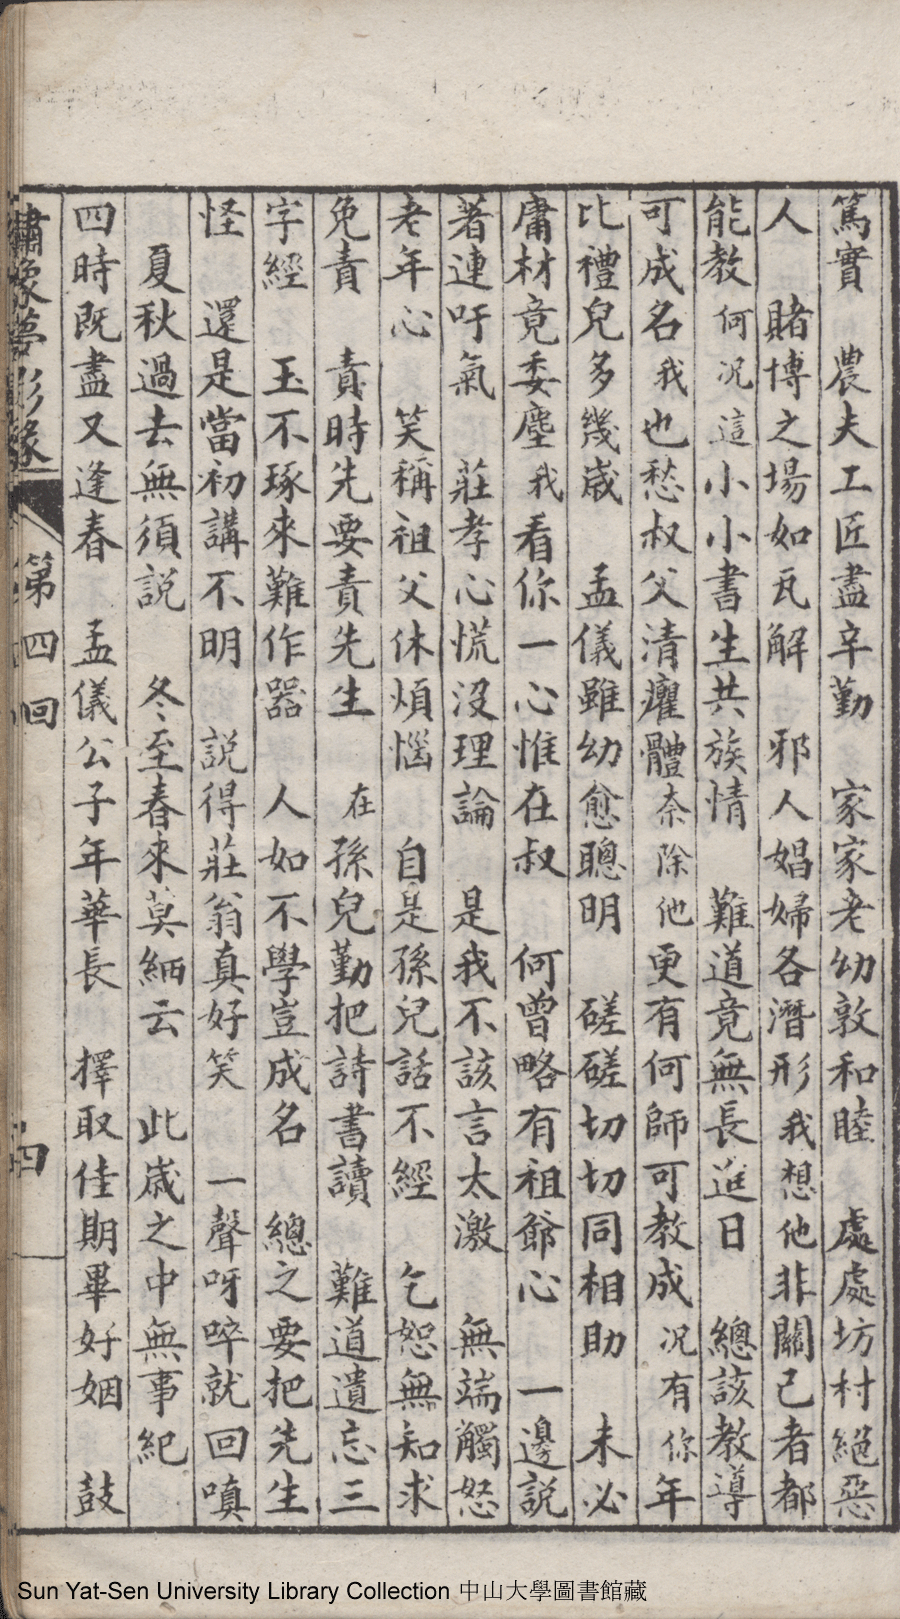 篤實　農夫工匠盡辛勤　家家老幼敦和睦　處處坊村絕惡
人　賭博之場如瓦解　邪人娼婦各潛形我想他非關己者都
能教何况這小小書生共族情　難道竟無長進日　總該教導
可成名我也愁叔父清癯體奈除他更有何師可教成况有你年
比禮兒多幾歲　孟儀雖幼愈聰明　磋磋切切同相助　未必
庸材竟委塵我看你一心惟在叔　何曾略有祖爺心　一邊說
著連吁氣　莊孝心慌沒理論　是我不該言太激　無端觸怒
老年心　笑稱祖父休煩惱　自是孫兒話不經　乞恕無知求
免責　責時先要責先生　在孫兒勤把詩書讀　難道遺忘三
字經　玉不琢來難作器　人如不學豈成名　總之要把先生
怪　還是當初講不明　說得莊翁真好笑　一聲呀啐就回嗔
夏秋過去無須說　冬至春來莫緬云　此歲之中無事紀
四時既盡又逢春　孟儀公子年華長　擇取佳期畢好姻　鼓
繡像夢影緣　第四回　四
Sun Yat-Sen University Library Collection 中山大學圖書館藏